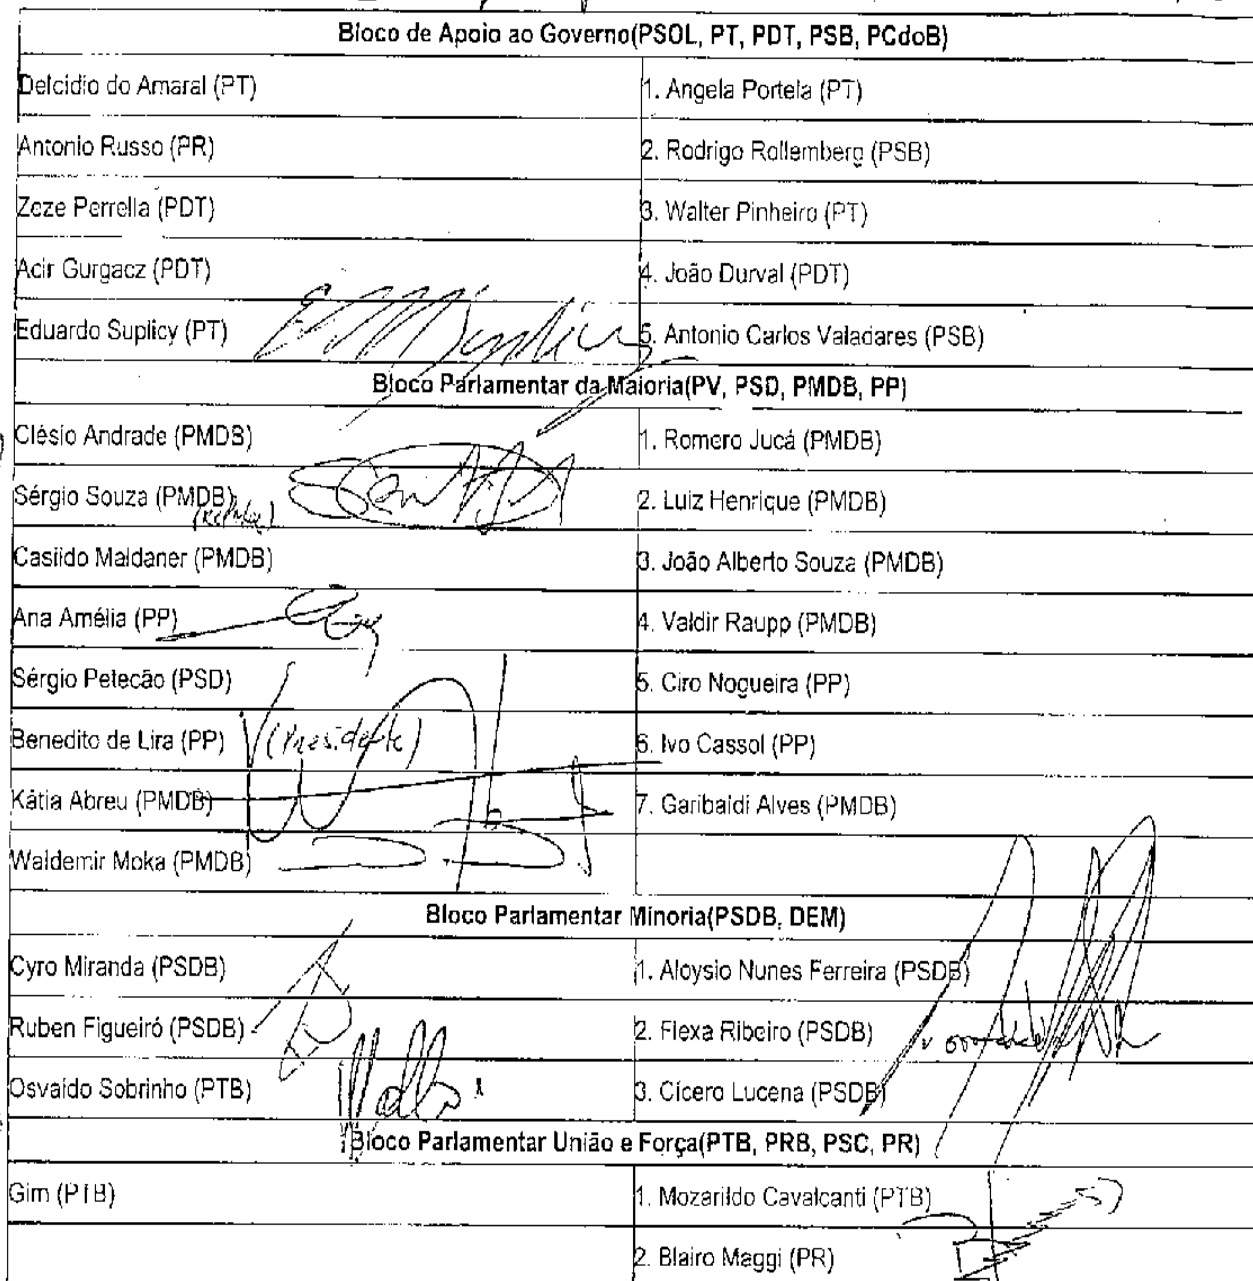 Bloco de Apoio ao Governo(PSOL, PT, PDT, PSB, PCdoB)
Delcídio do Amaral (PT) 1. Angela Portela (PT)
Antonio Russo (PR) 2. Rodrigo Rollemberg (PSB)
Zeze Perrella (PDT) 3. Walter Pinheiro (PT)
Acir Gurgacz (PDT) 4. João Durval (PDT)
Eduardo Suplicy (PT) 5. Antonio Carlos Valadares (PSB)
Bloco Parlamentar da Maioria(PV, PSD, PMDB, PP)
Clésio Andrade (PMDB) 1. Romero Jucá (PMDB)
Sérgio Souza (PMDB) 2. Luiz Henrique (PMDB)
Casildo Maldaner (PMDB) 3. João Alberto Souza (PMDB)
Ana Amélia (PP) 4. Valdir Raupp (PMDB)
Sérgio Petecão (PSD) 5. Ciro Nogueira (PP)
Benedito de Lira (PP) (Presidente) 6. Ivo Cassol (PP)
Kátia Abreu (PMDB) 7. Garibaldi Alves (PMDB)
Waldemir Moka (PMDB)
Bloco Parlamentar Minoria(PSDB, DEM)
Cyro Miranda (PSDB) 1. Aloysio Nunes Ferreira (PSDB)
Ruben Figueiró (PSDB) 2. Flexa Ribeiro (PSDB)
Osvaldo Sobrinho (PTB) 3. Cícero Lucena (PSDB)
Bloco Parlamentar União e Força(PTB, PRB, PSC, PR)
Gim (PTB) 1. Mozarildo Cavalcanti (PTB)
2. Blairo Maggi (PR)